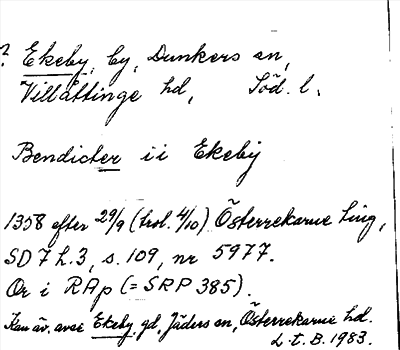 ? Ekeby, by, Dunkers sn,
Villåttinge hd, Söd. l.
Bendicter ii Ekeby
1358 efter 29/9 (trol. 4/10) Österrekarne ting,
SD 7 h. 3, s. 109, nr 5977.
Or i RAp (= SRP 385).
Kan äv. avse Ekeby, gd, Jäders sn, Österrekarne hd.
L.t.B. 1983.